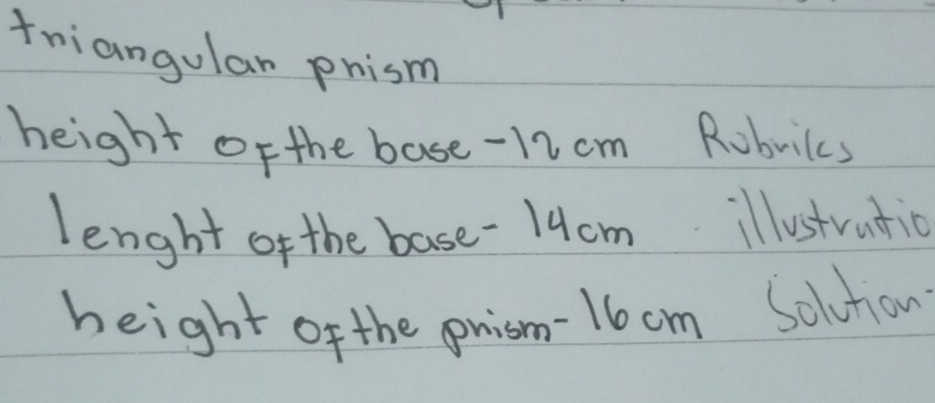 triangular prism
height of the base - 12 cm Rubriks
lenght of the base - 14 cm illustratio
height of the prism - 16 cm Solution